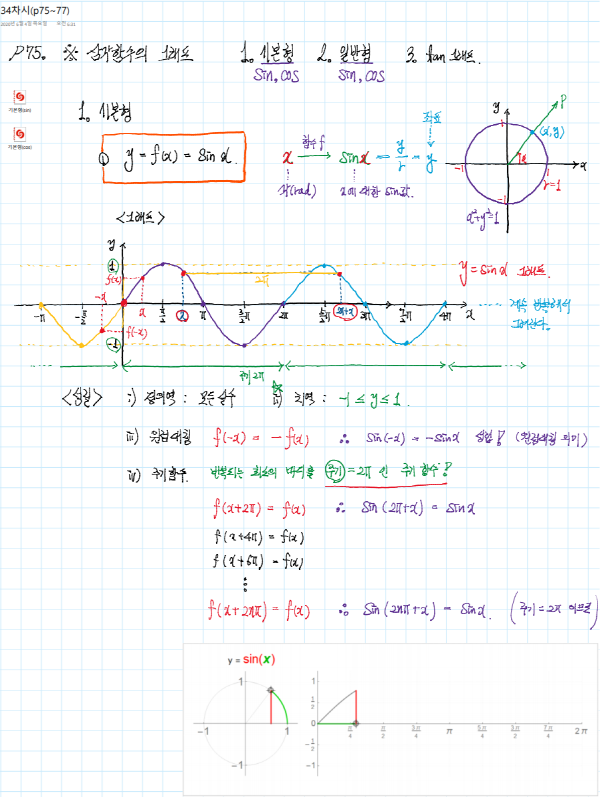 34차시(p75~77)
P75. ※ 삼각함수의 그래프 1. 기본형 2. 일반형 3. tan 그래프.
sin, cos sin, cos
기본형(sin)
기본형(cos)
1. 기본형
① y = f(x) = sin x.
함수 f
x → sin x ⇔ y/r = y
좌표
각(rad) x에 대한 sin값.
y P (x, y) x -1 1 1 -1 r=1
x²+y²=1
<그래프>
y = sin x 그래프.
y 1 f(x) -x x f(-x) -1 2π
-π -π/2 π/2 x π 3/2π 2π 5/2π 2π+x 3π 7/2π 4π x
계속 반복해서
그려진다.
주기 2π
<성질> i) 정의역 : 모든 실수 ii) 치역 : -1 ≤ y ≤ 1
iii) 원점대칭 f(-x) = -f(x) ∴ sin(-x) = -sin x 성립! (원점대칭 의미)
iv) 주기함수. 반복되는 최소의 마디를 주기 = 2π 인 주기함수!
f(x+2π) = f(x) ∴ sin(2π+x) = sin x
f(x+4π) = f(x)
f(x+6π) = f(x)
⋮
f(x+2nπ) = f(x) ∴ sin(2nπ+x) = sin x. (주기=2π 이므로)
y = sin(x)
1 -1 1 -1
1 1/2 0 -1/2 -1
π/4 π/2 3π/4 π 5π/4 3π/2 7π/4 2π